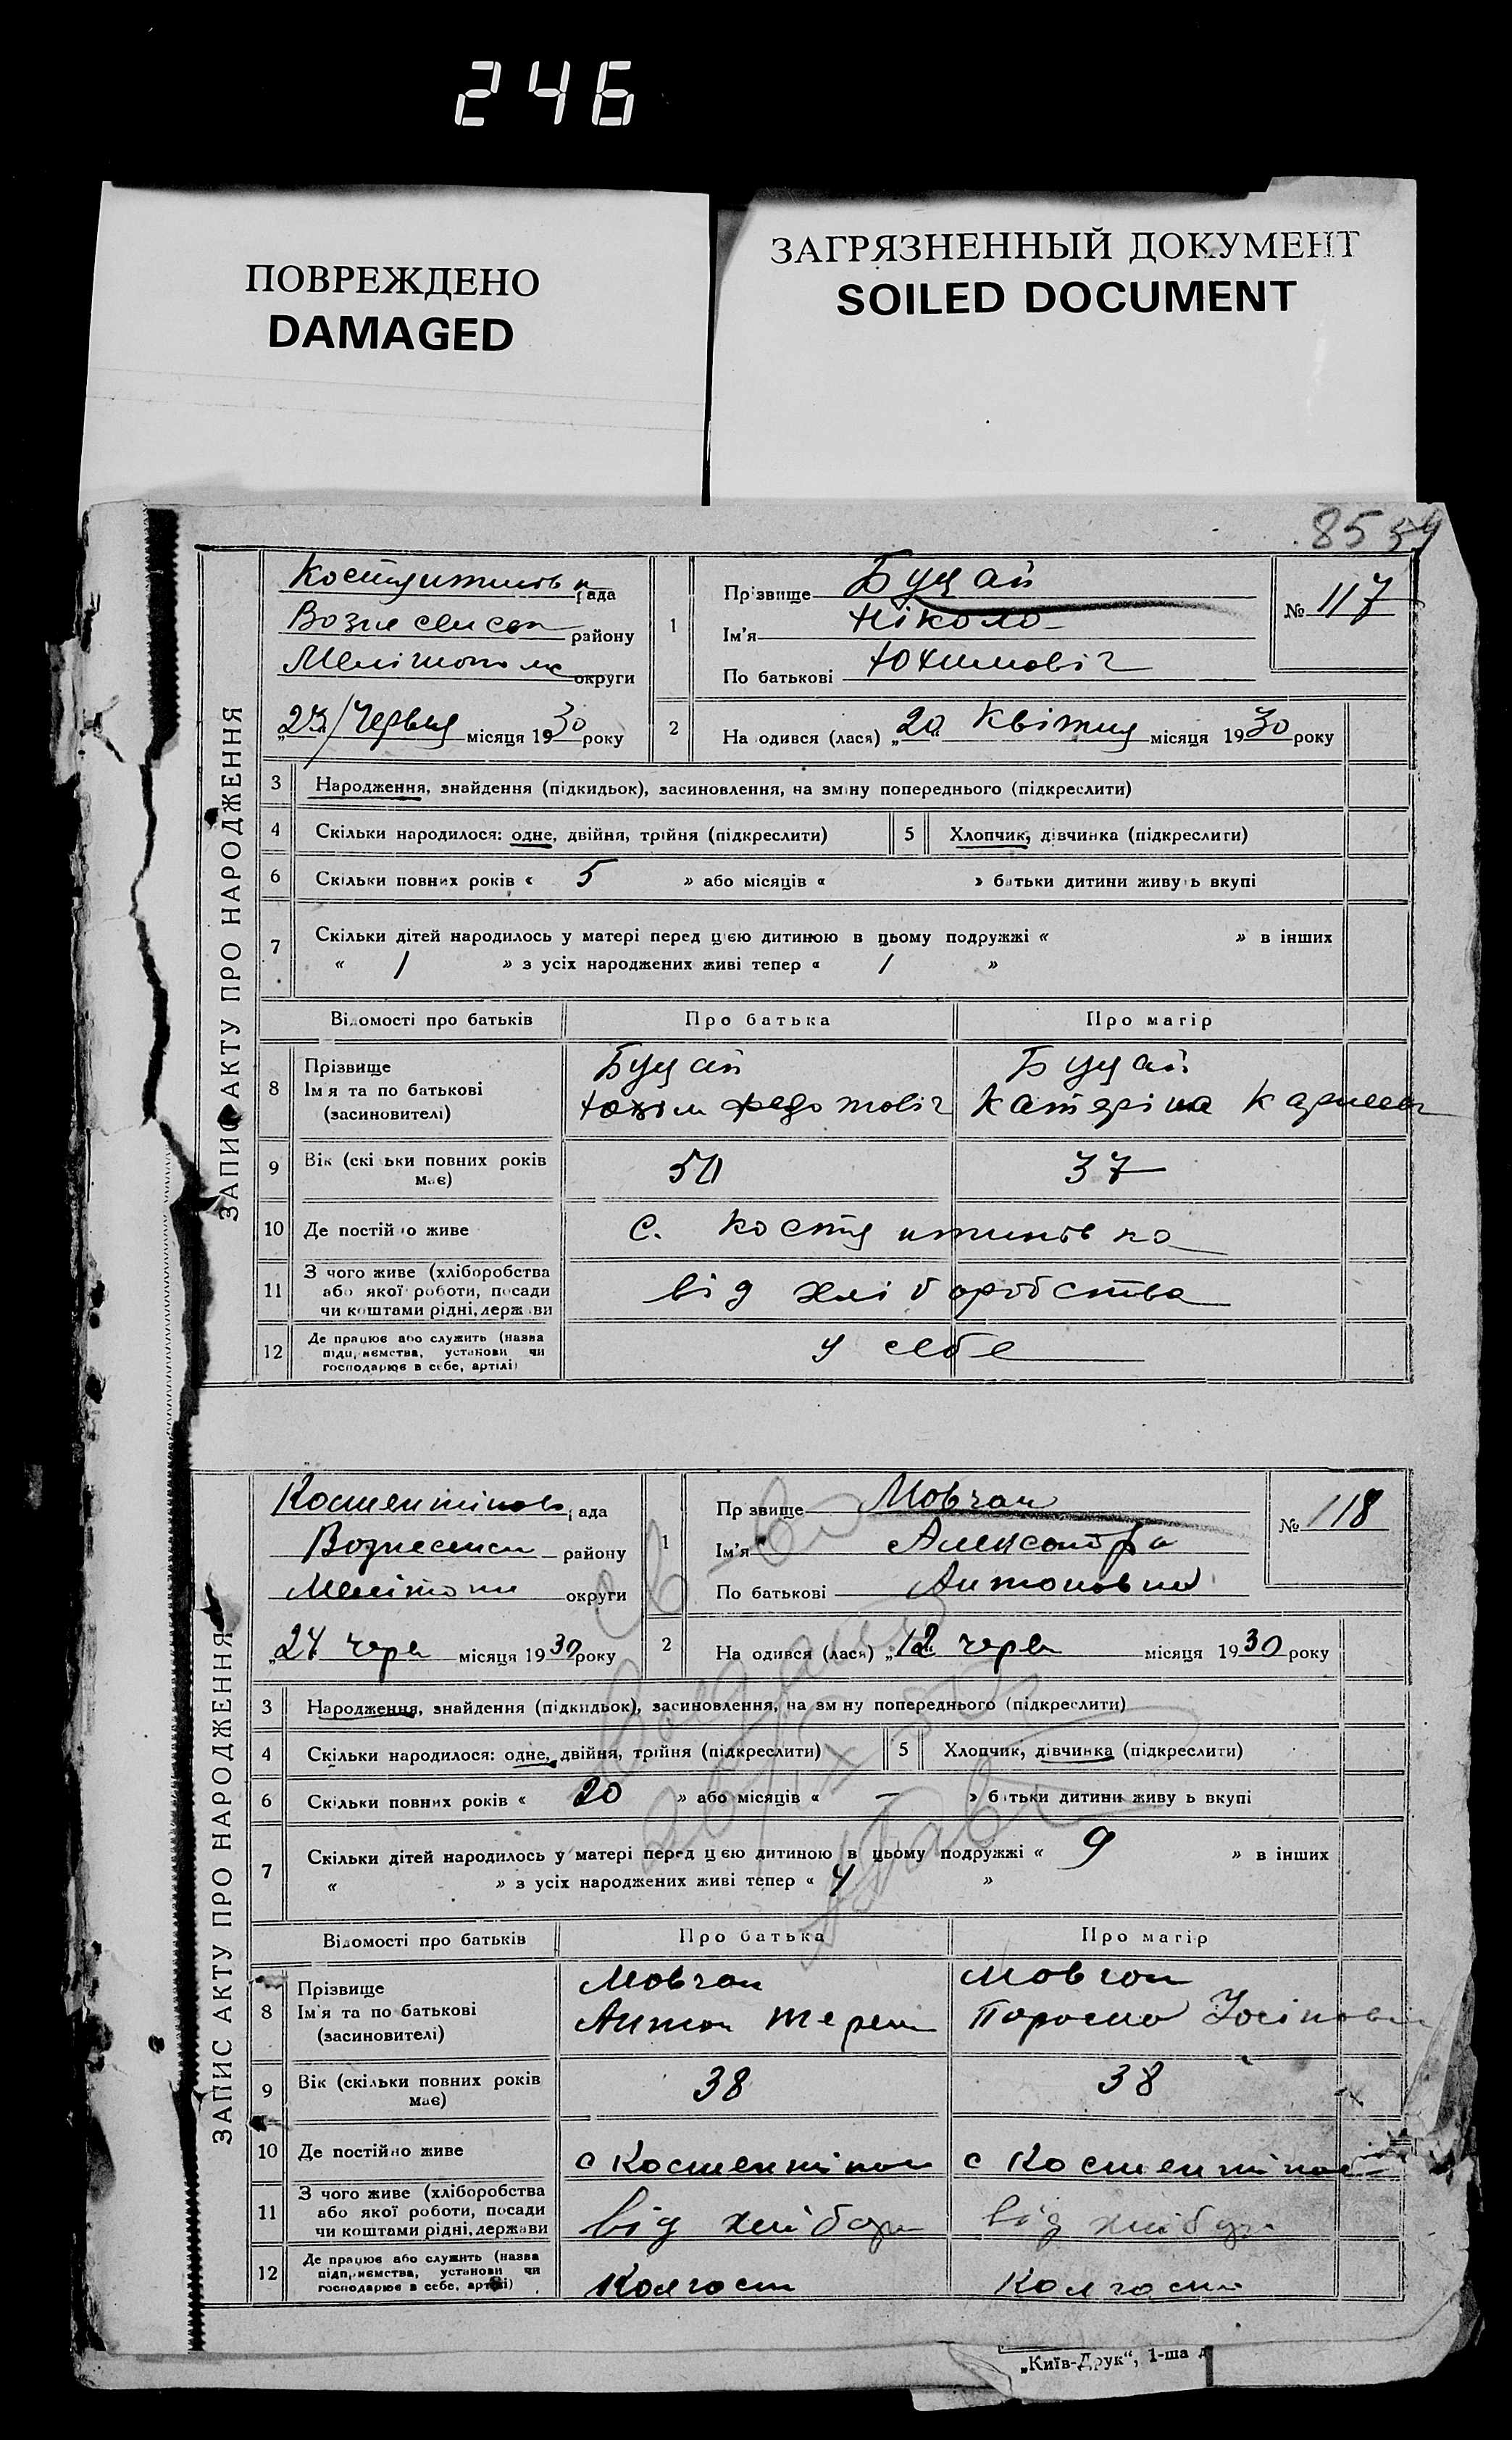 246
ПОВРЕЖДЕНО
DAMAGED
ЗАГРЯЗНЕННЫЙ ДОКУМЕНТ
SOILED DOCUMENT
ЗАПИС АКТУ ПРО НАРОДЖЕННЯ
рада
району
округи
23 Червця місяця 1930 року
1
Прізвище Буцай
Ім'я Ніколо
По батькові Юхимовіч
№ 117
2
На одився (лася) „20" Квітня місяця 1930 року
3 Народження, знайдення (підкидьок), засиновлення, на зміну попереднього (підкреслити)
4 Скільки народилося: одне, двійня, трійня (підкреслити) 5 Хлопчик, дівчинка (підкреслити)
6 Скільки повних років « 5 » або місяців « » батьки дитини живуть вкупі
7 Скільки дітей народилось у матері перед цією дитиною в цьому подружжі « » в інших
« 1 » з усіх народжених живі тепер « 1 »
Відомості про батьків Про батька Про матір
8 Прізвище Буцай Буцай
Ім'я та по батькові Юхім Федотовіч Катеріна
(засиновителі)
9 Вік (скільки повних років 37
має)
10 Де постійно живе с.
11 З чого живе (хліборобства
або якої роботи, посади від хліборобства
чи коштами рідні, держави
12 Де працює або служить (назва
підприємства, установи чи у себе
господарює в себе, артілі)
ЗАПИС АКТУ ПРО НАРОДЖЕННЯ
рада
району
округи
„24 черв місяця 1930 року
1
Пр звище Мовчан
Ім'я Александра
По батькові Антоновна
№ 118
2
На одився (лася) „12" черв місяця 1930 року
3 Народження, знайдення (підкидьок), засиновлення, на зм ну попереднього (підкреслити)
4 Скільки народилося: одне, двійня, трійня (підкреслити) 5 Хлопчик, дівчинка (підкреслити)
6 Скільки повних років « 20 » або місяців « — » батьки дитини живу ь вкупі
7 Скільки дітей народилось у матері перед цією дитиною в цьому подружжі « 9 » в інших
« » з усіх народжених живі тепер « 4 »
Відомості про батьків Про батька Про матір
8 Прізвище Мовчан Мовчан
Ім'я та по батькові Антон Терен
(засиновителі)
9 Вік (скільки повних років 38 38
має)
10 Де постійно живе с с
11 З чого живе (хліборобства
або якої роботи, посади від хлібор від хлібор
чи коштами рідні, держави
12 Де працює або служить (назва
підприємства, установи чи
господарює в себе, артілі)
„Київ-Друк", 1-ша